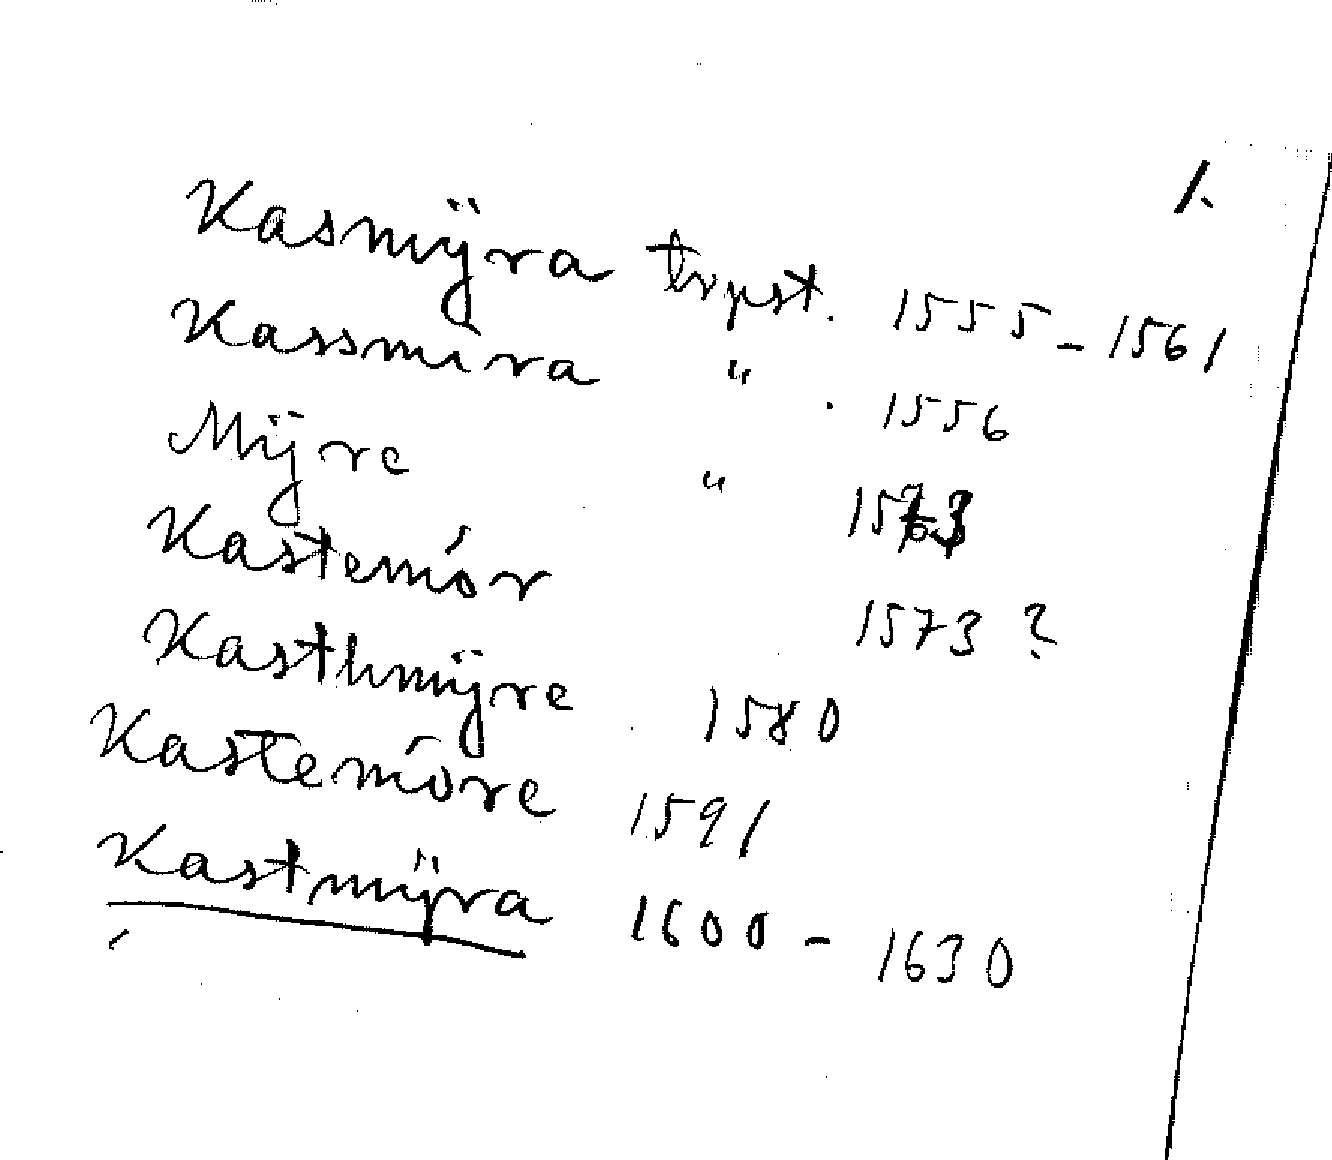 1.
Kasmÿra tvpst. 1555-1561
Kassmira " . 1556
Mÿre "
Kastemór 1573 ?
Kasthmÿre 1580
Kastemóre 1591
Kastmÿra 1600 - 1630